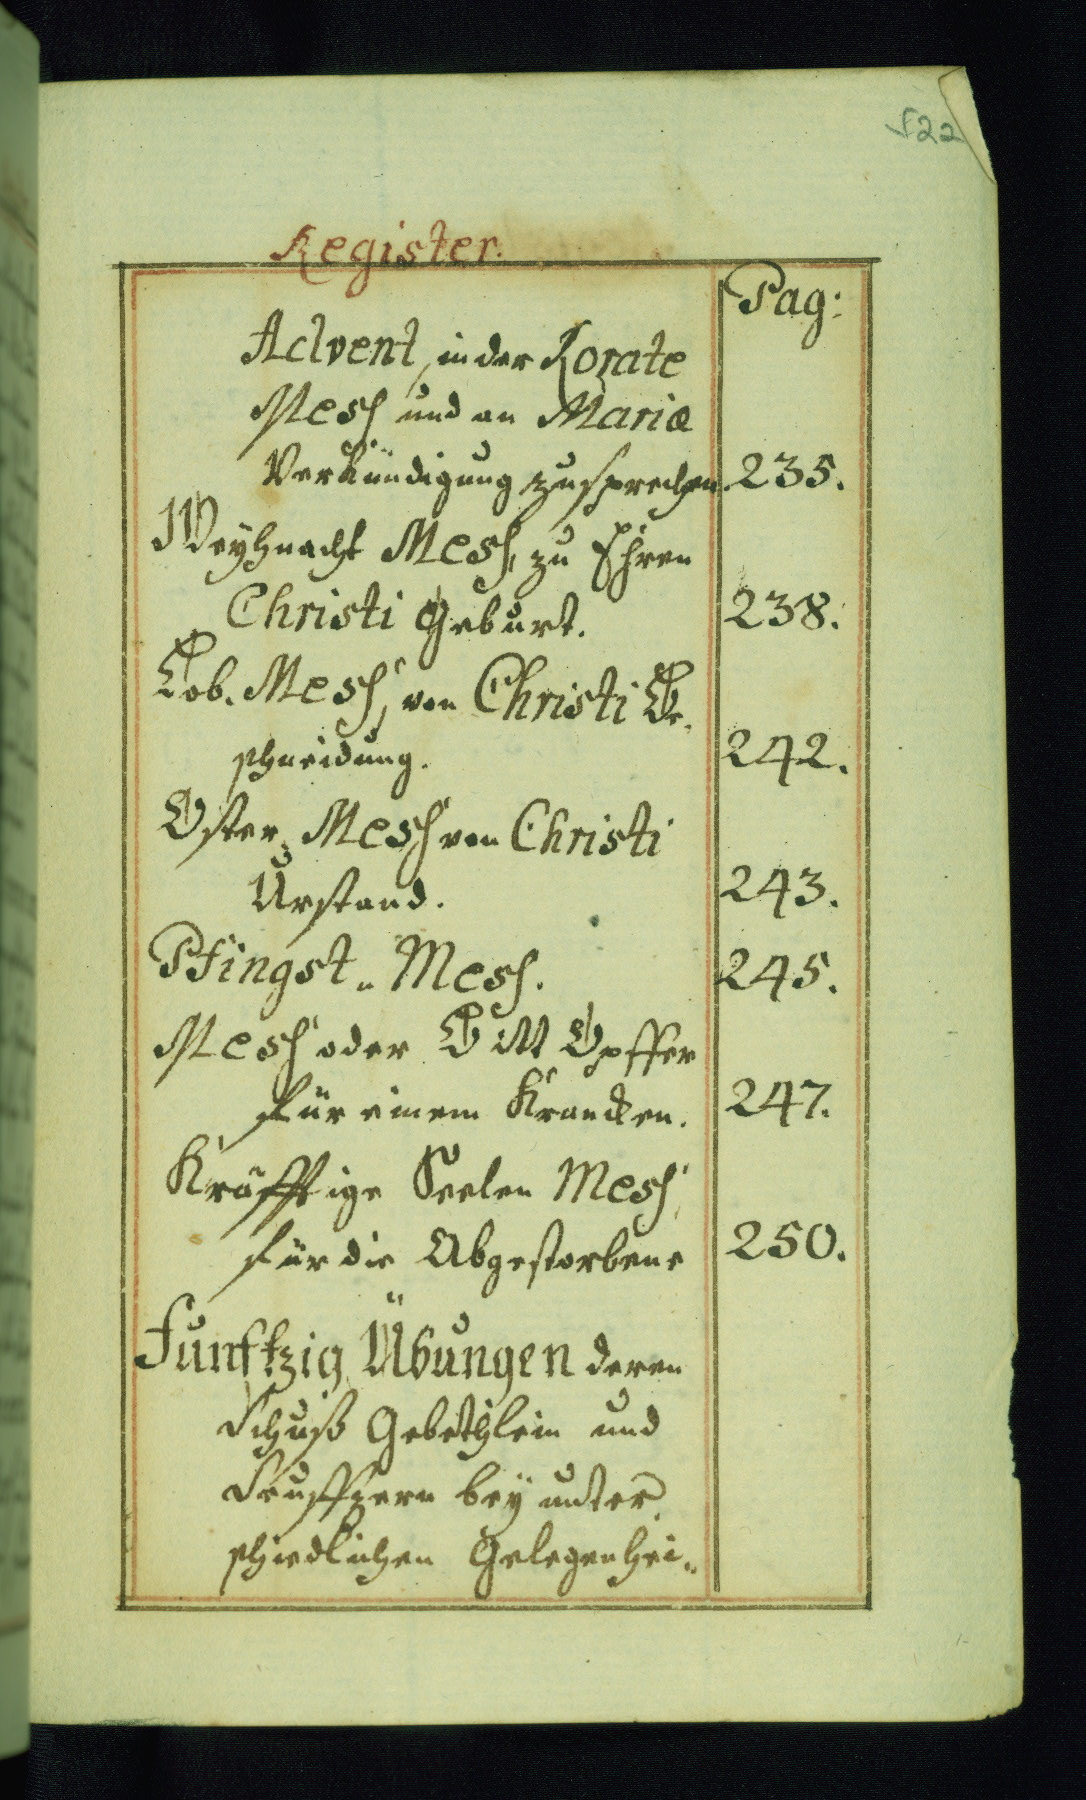 522
Register.
Pag:
Advent, in der Rorate
Mess und an Mariæ
Verkündigung zusprechen. 235.
Weÿhnacht Mess, zu Ehren
Christi Geburt. 238.
Lob-Mess, von Christi Be-
schneidung. 242.
Oster-Mess von Christi
Urstand. 243.
Pfingst-Mess. 245.
Mess oder Bitt Opffer
für einem Krancken. 247.
Kräfftige Seelen Mess
für die Abgestorbene 250.
Funftzig Übungen deren
Schuß Gebethlein und
Seuffzern beÿ unter-
schiedlichen Gelegenhei-